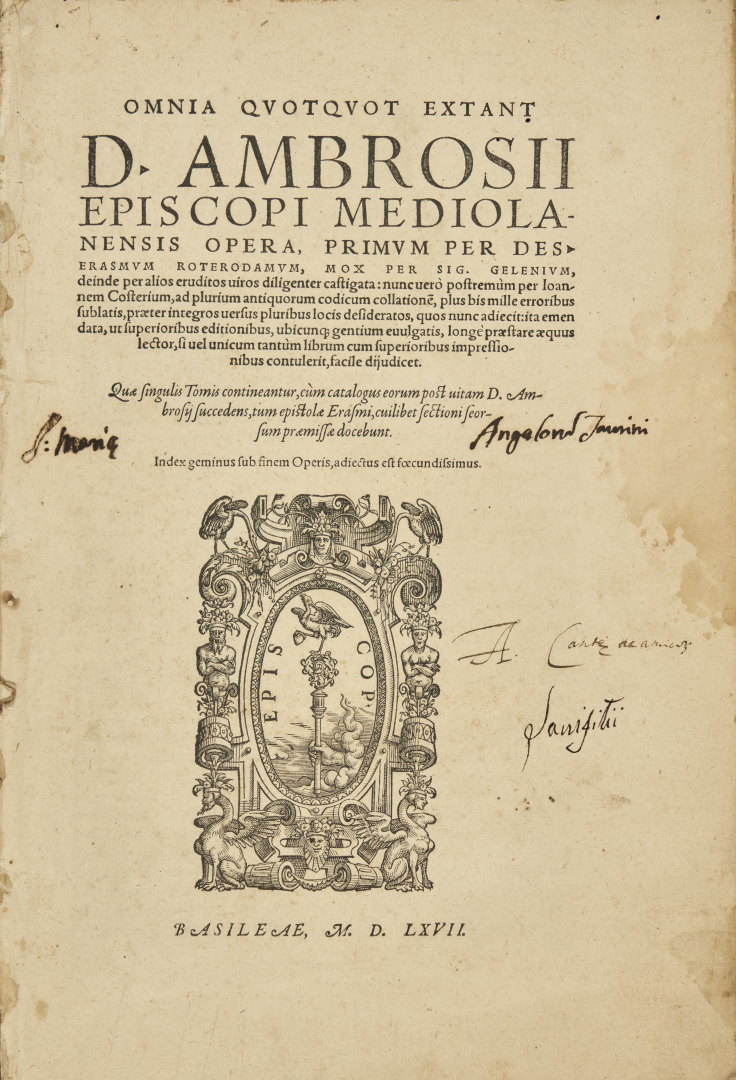 OMNIA QVOTQVOT EXTANT
D. AMBROSII
EPISCOPI MEDIOLA-
NENSIS OPERA, PRIMVM PER DES
ERASMVM ROTERODAMVM, MOX PER SIG. GELENIVM,
deinde per alios eruditos uiros diligenter castigata: nunc uerò postremùm per Ioan-
nem Costerium, ad plurium antiquorum codicum collationẽ, plus bis mille erroribus
sublatis, præter integros uersus pluribus locis desideratos, quos nunc adiecit: ita emen
data, ut superioribus editionibus, ubicunq; gentium euulgatis, longè præstare æquus
lector, si uel unicum tantùm librum cum superioribus impressio-
nibus contulerit, facilè dijudicet.
Quæ singulis Tomis contineantur, cùm catalogus eorum post uitam D. Am-
brosij succedens, tum epistolæ Erasmi, cuilibet sectioni seor-
sum præmissæ docebunt.
S: Mariæ
Angelorũ Taurini
Index geminus sub finem Operis, adiectus est fœcundissimus.
EPIS COP.
A.
BASILEAE, M. D. LXVII.